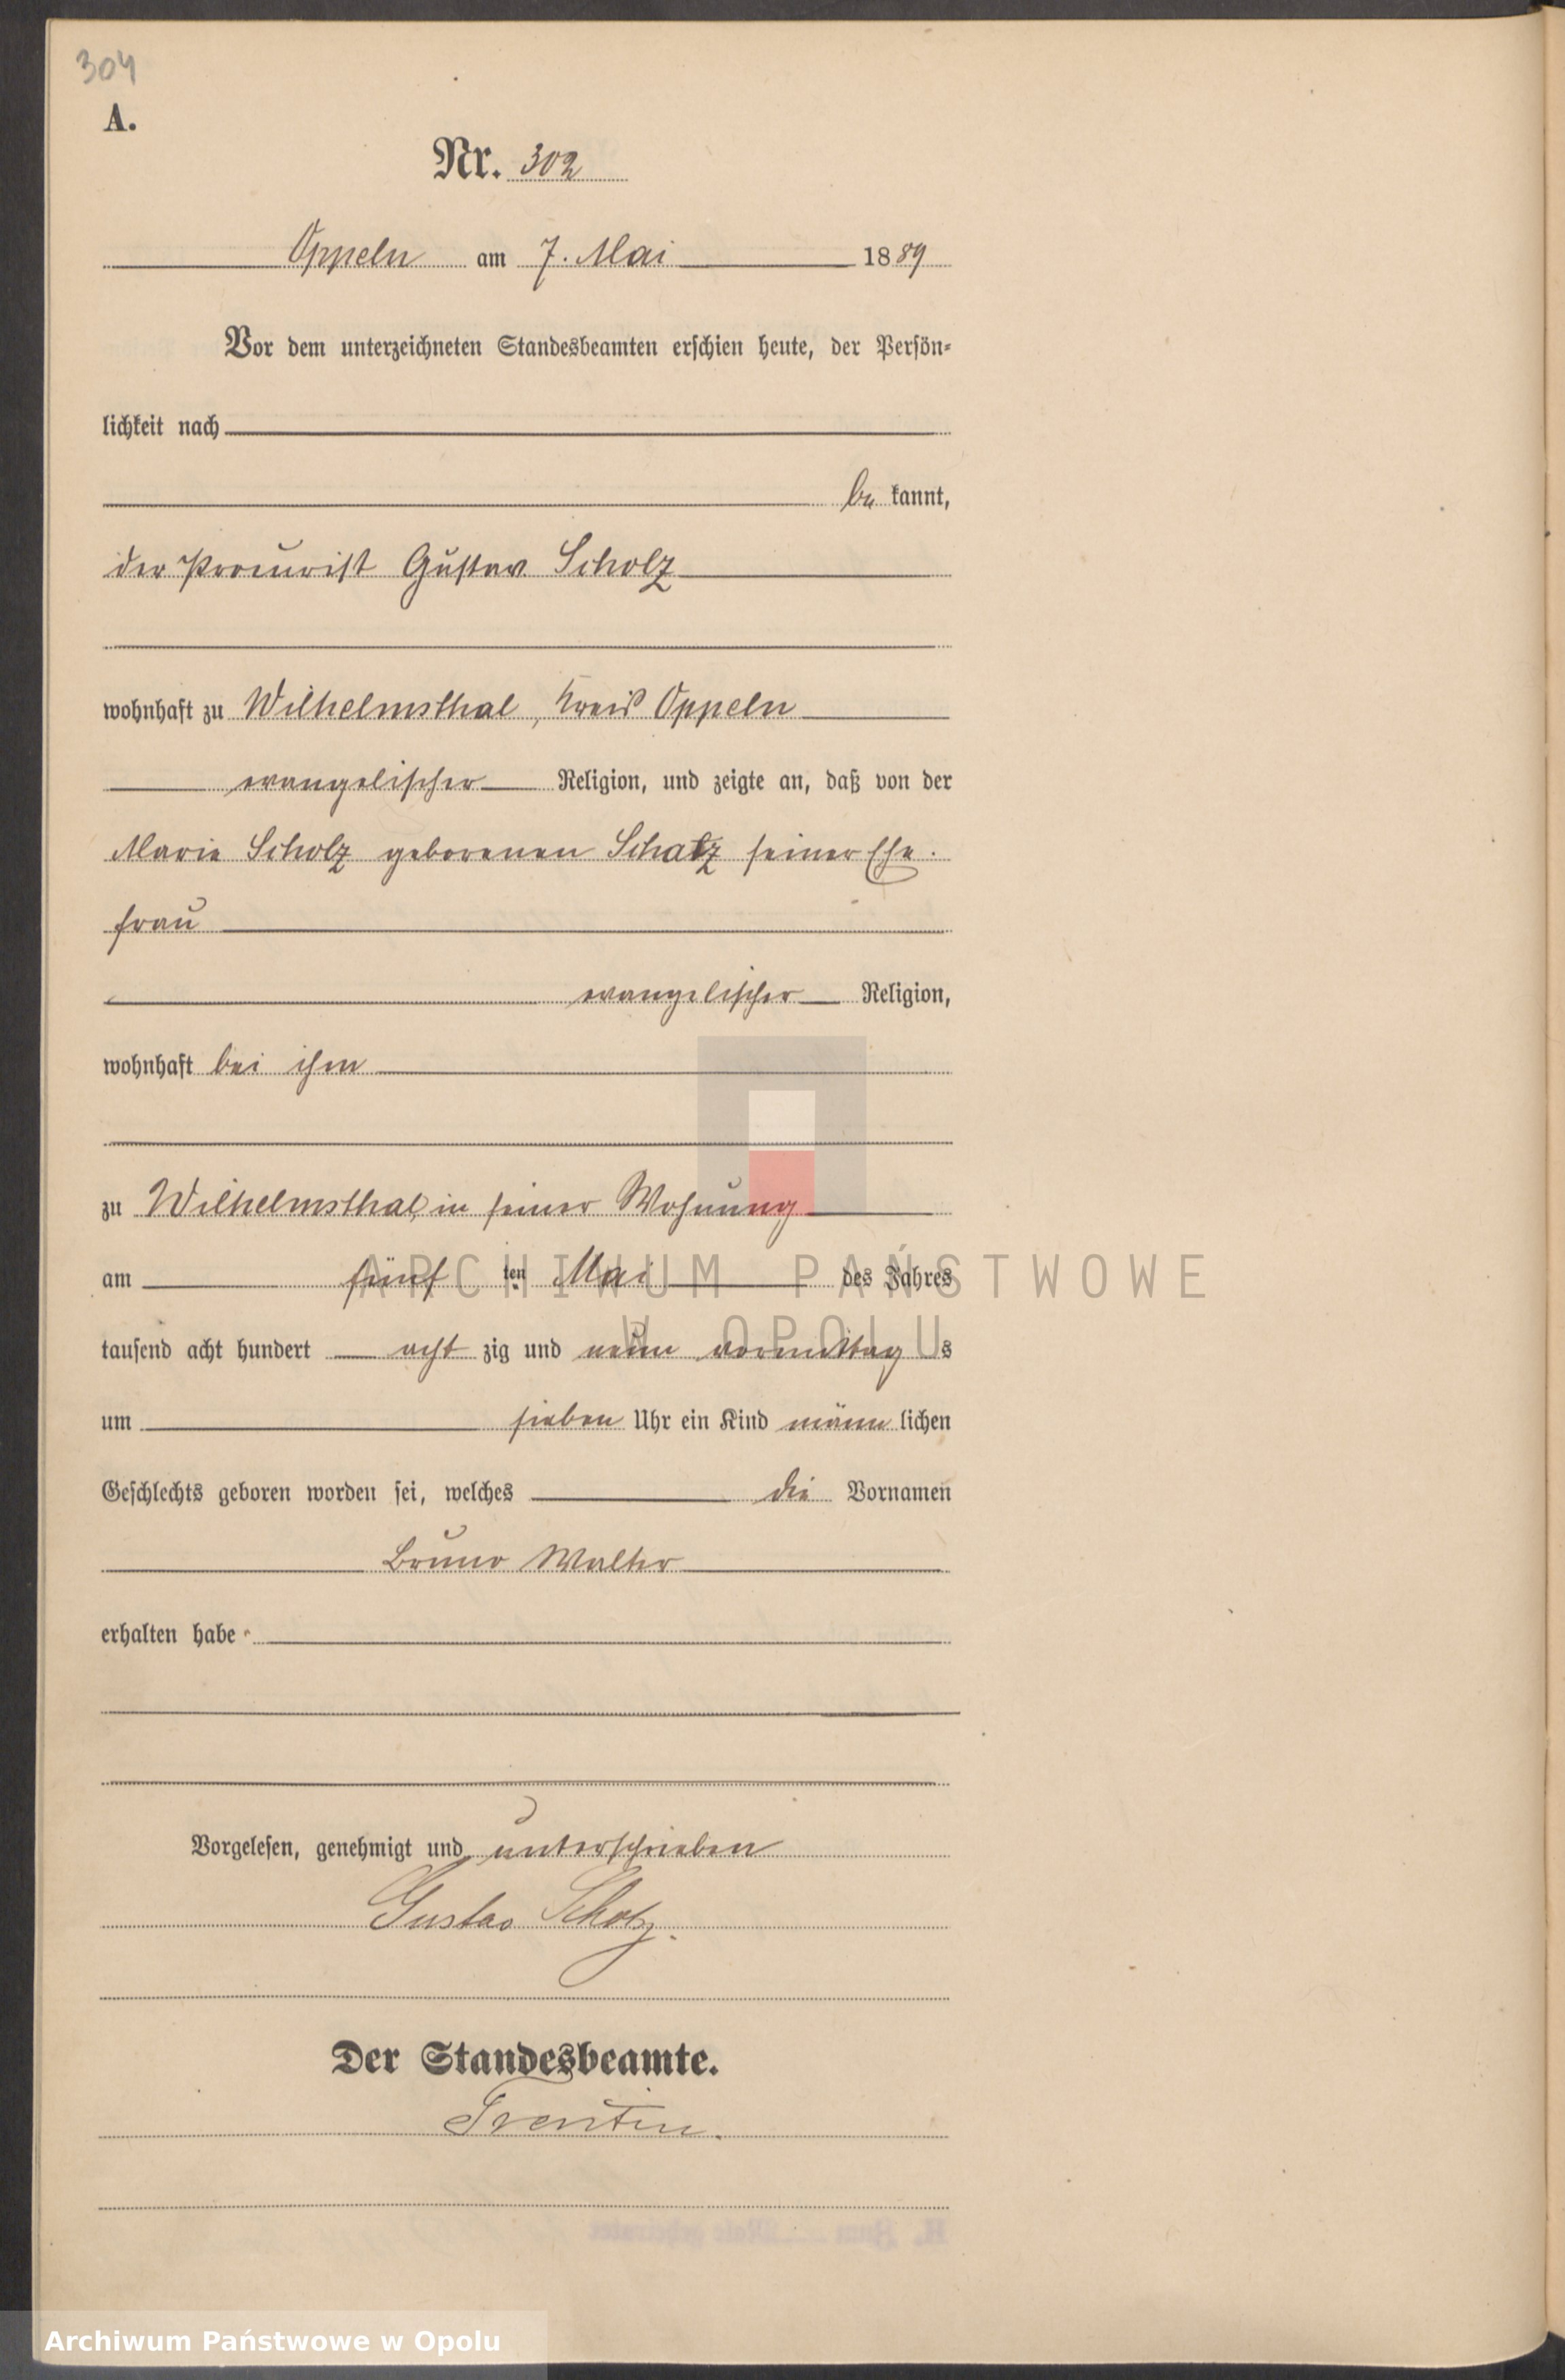 304
A.
Nr. 302
Oppeln am 7. Mai 1889
Vor dem unterzeichneten Standesbeamten erschien heute, der Persön-
lichkeit nach
be kannt,
der Procurist Gustav Scholz
wohnhaft zu Wilhelmsthal, Kreis Oppeln
evangelischer Religion, und zeigte an, daß von der
Marie Scholz geborenen Schatz seiner Ehe-
frau
evangelischer Religion,
wohnhaft bei ihm
zu Wilhelmsthal, in seiner Wohnung
am fünf ten Mai des Jahres
tausend acht hundert acht zig und neun vormittag s
um sieben Uhr ein Kind männ lichen
Geschlechts geboren worden sei, welches die Vornamen
Bruno Walter
erhalten habe
Vorgelesen, genehmigt und unterschrieben
Gustav Scholz.
Der Standesbeamte.
ARCHIWUM PAŃSTWOWE
W OPOLU
Archiwum Państwowe w Opolu